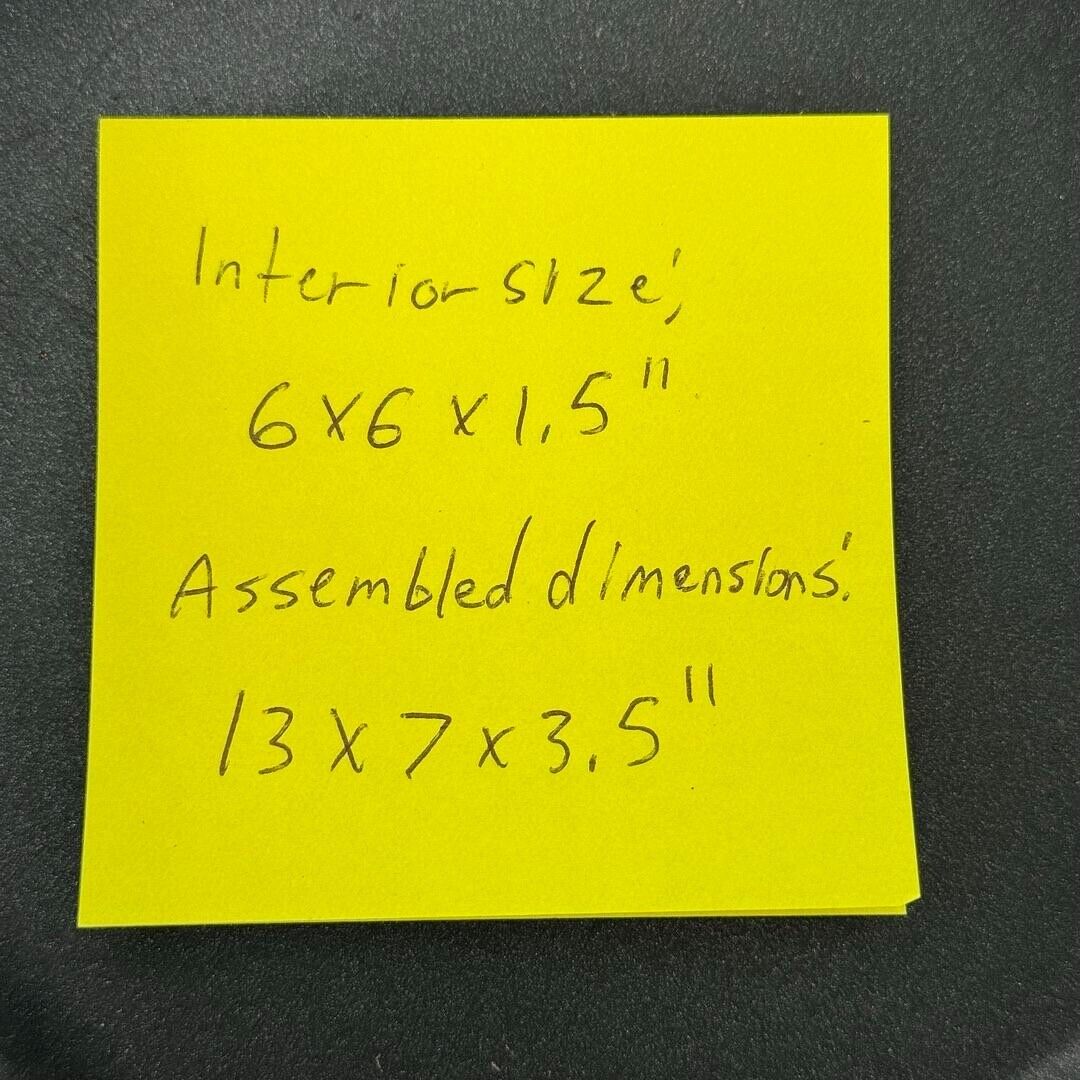 Interior size:
6x6x1.5"
Assembled dimensions:
13x7x3.5"